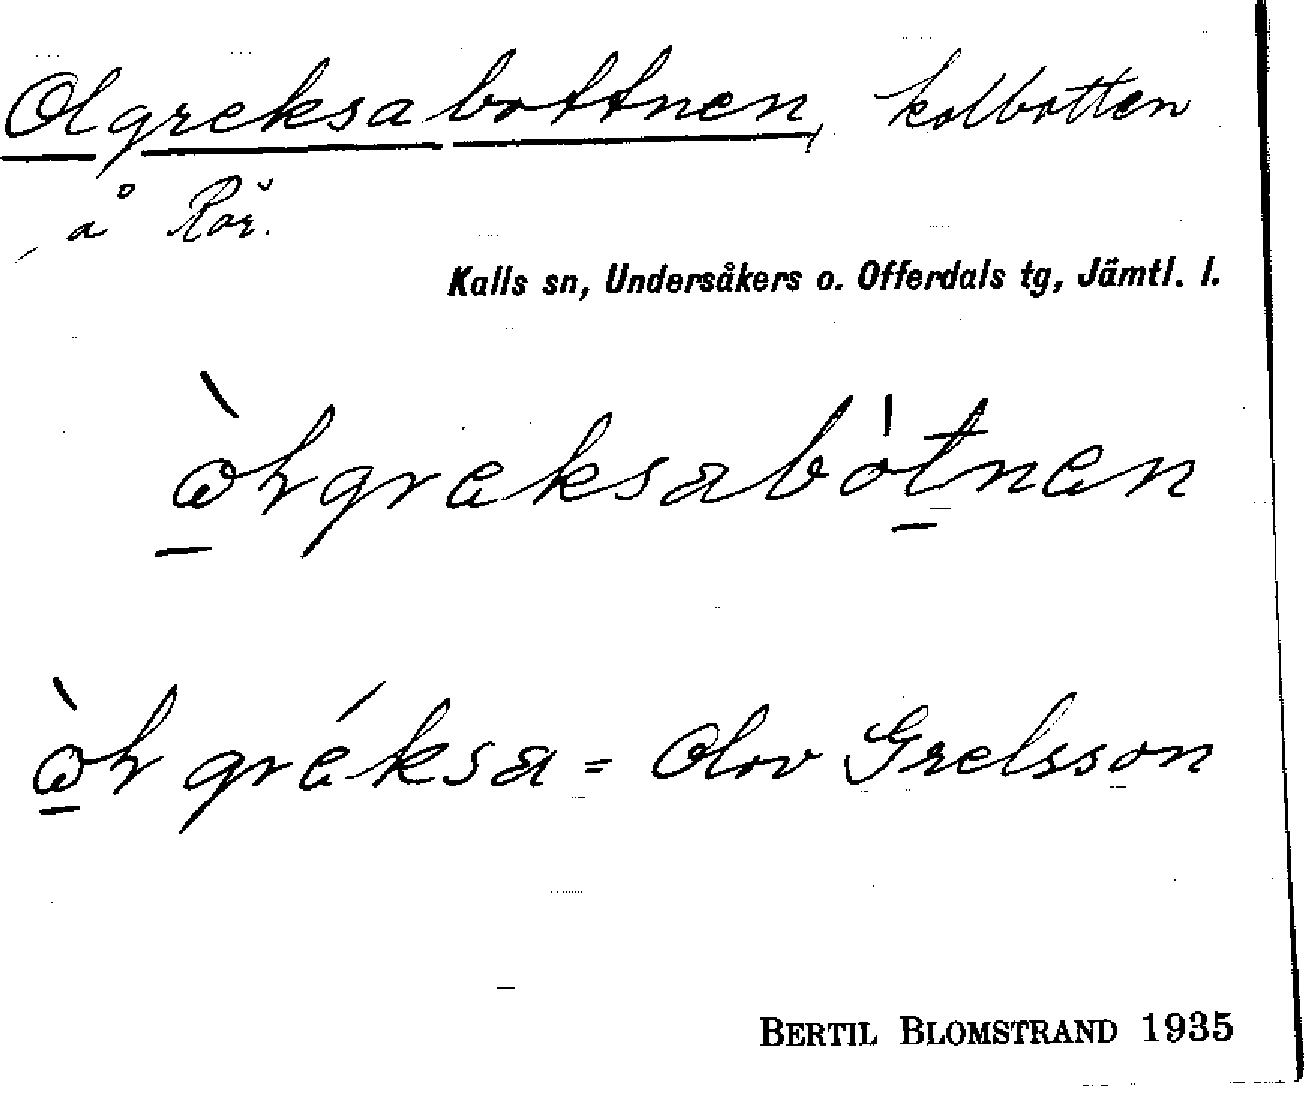 Olgreksabottnen, kolbotten
å Rör.
Kalls sn, Undersåkers o. Offerdals tg, Jämtl. l.
òɷhgreksabòtnen
òɷh gréksa = Olov Grelsson
BERTIL BLOMSTRAND 1935